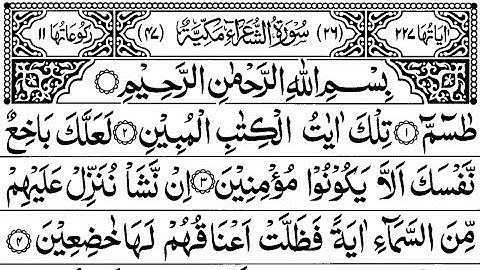 اٰیَاتُهَا ۲۲۷ (۲۶) سُوْرَةُ الشُّعَرَآءِ مَكِّیَّةٌ (۴۷) رُكُوْعَاتُهَا ۱۱
بِسْمِ اللّٰهِ الرَّحْمٰنِ الرَّحِیْمِ
طٰسٓمّٓ ۱ تِلْكَ اٰیٰتُ الْكِتٰبِ الْمُبِیْنِ ۲ لَعَلَّكَ بَاخِعٌ
نَّفْسَكَ اَلَّا یَكُوْنُوْا مُؤْمِنِیْنَ ۳ اِنْ نَّشَاْ نُنَزِّلْ عَلَیْهِمْ
مِّنَ السَّمَآءِ اٰیَةً فَظَلَّتْ اَعْنَاقُهُمْ لَهَا خٰضِعِیْنَ ۴